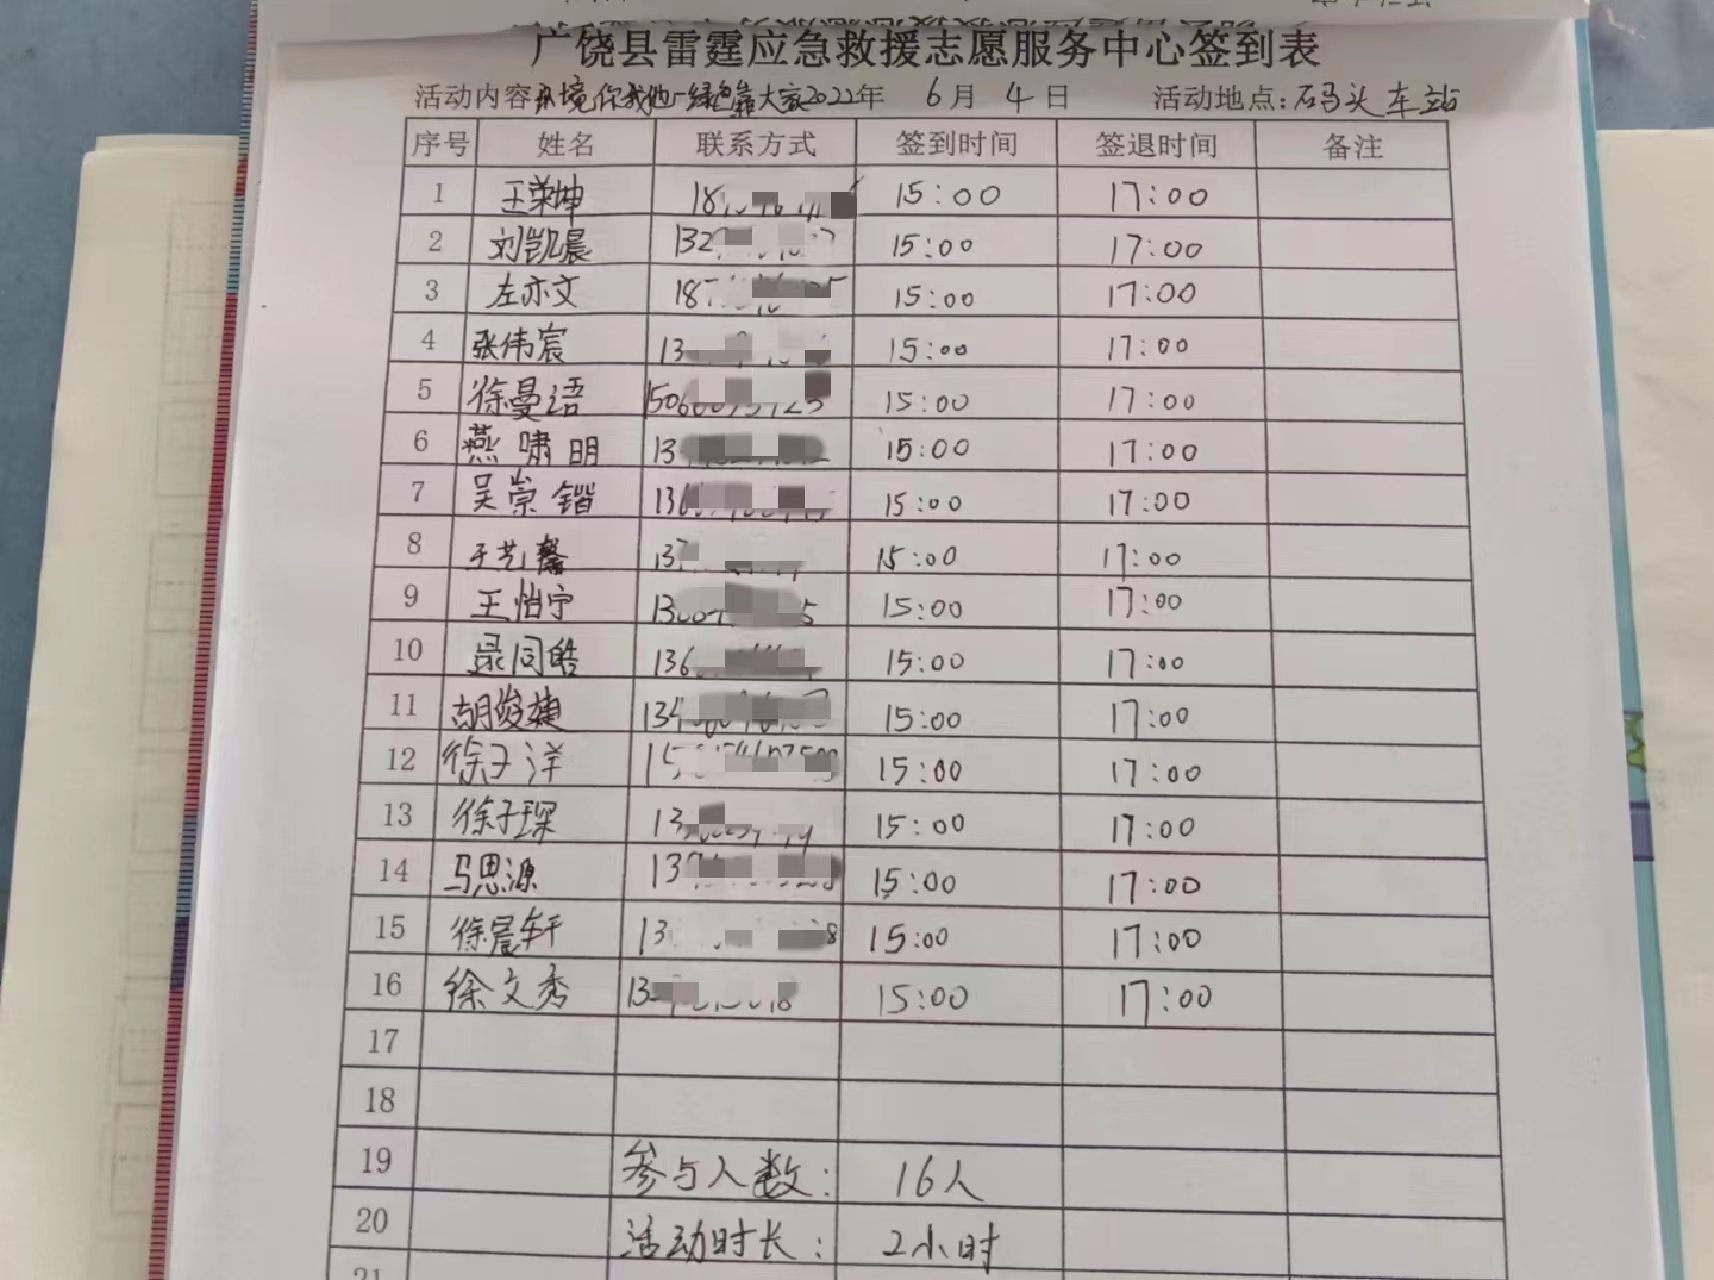 广饶县雷霆应急救援志愿服务中心签到表
活动内容环境你我他一绿色靠大家2022年 6月 4日 活动地点:石码头车站
序号 姓名 联系方式 签到时间 签退时间 备注
1 王荣坤 15:00 17:00
2 刘凯晨 132 15:00 17:00
3 左亦文 187 15:00 17:00
4 张伟宸 13 15:00 17:00
5 徐曼语 15:00 17:00
6 燕啸明 13 15:00 17:00
7 吴崇锴 136 15:00 17:00
8 于艺馨 137 15:00 17:00
9 王怡宁 15:00 17:00
10 同皓 136 15:00 17:00
11 胡俊婕 134 15:00 17:00
12 徐子洋 15 15:00 17:00
13 徐子琛 13 15:00 17:00
14 马思源 137 15:00 17:00
15 徐晨轩 13 15:00 17:00
16 徐文秀 13 15:00 17:00
17
18
19 参与人数: 16人
20 活动时长: 2小时
21